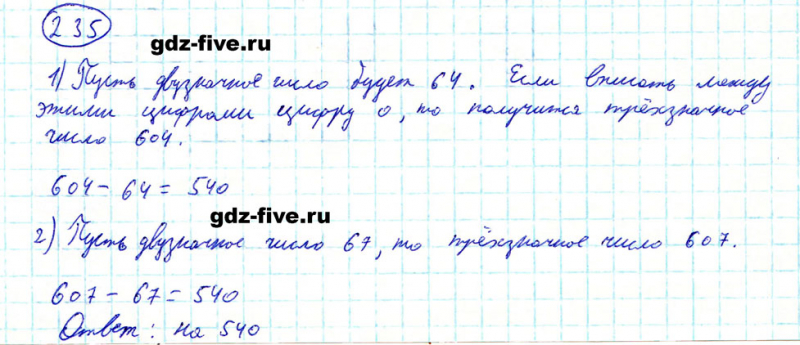 235
gdz-five.ru
1) Пусть двузначное число будет 64. Если вписать между
этими цифрами цифру 0, то получится трёхзначное
число 604.
604 - 64 = 540
gdz-five.ru
2) Пусть двузначное число 67, то трёхзначное число 607.
607 - 67 = 540
Ответ: на 540